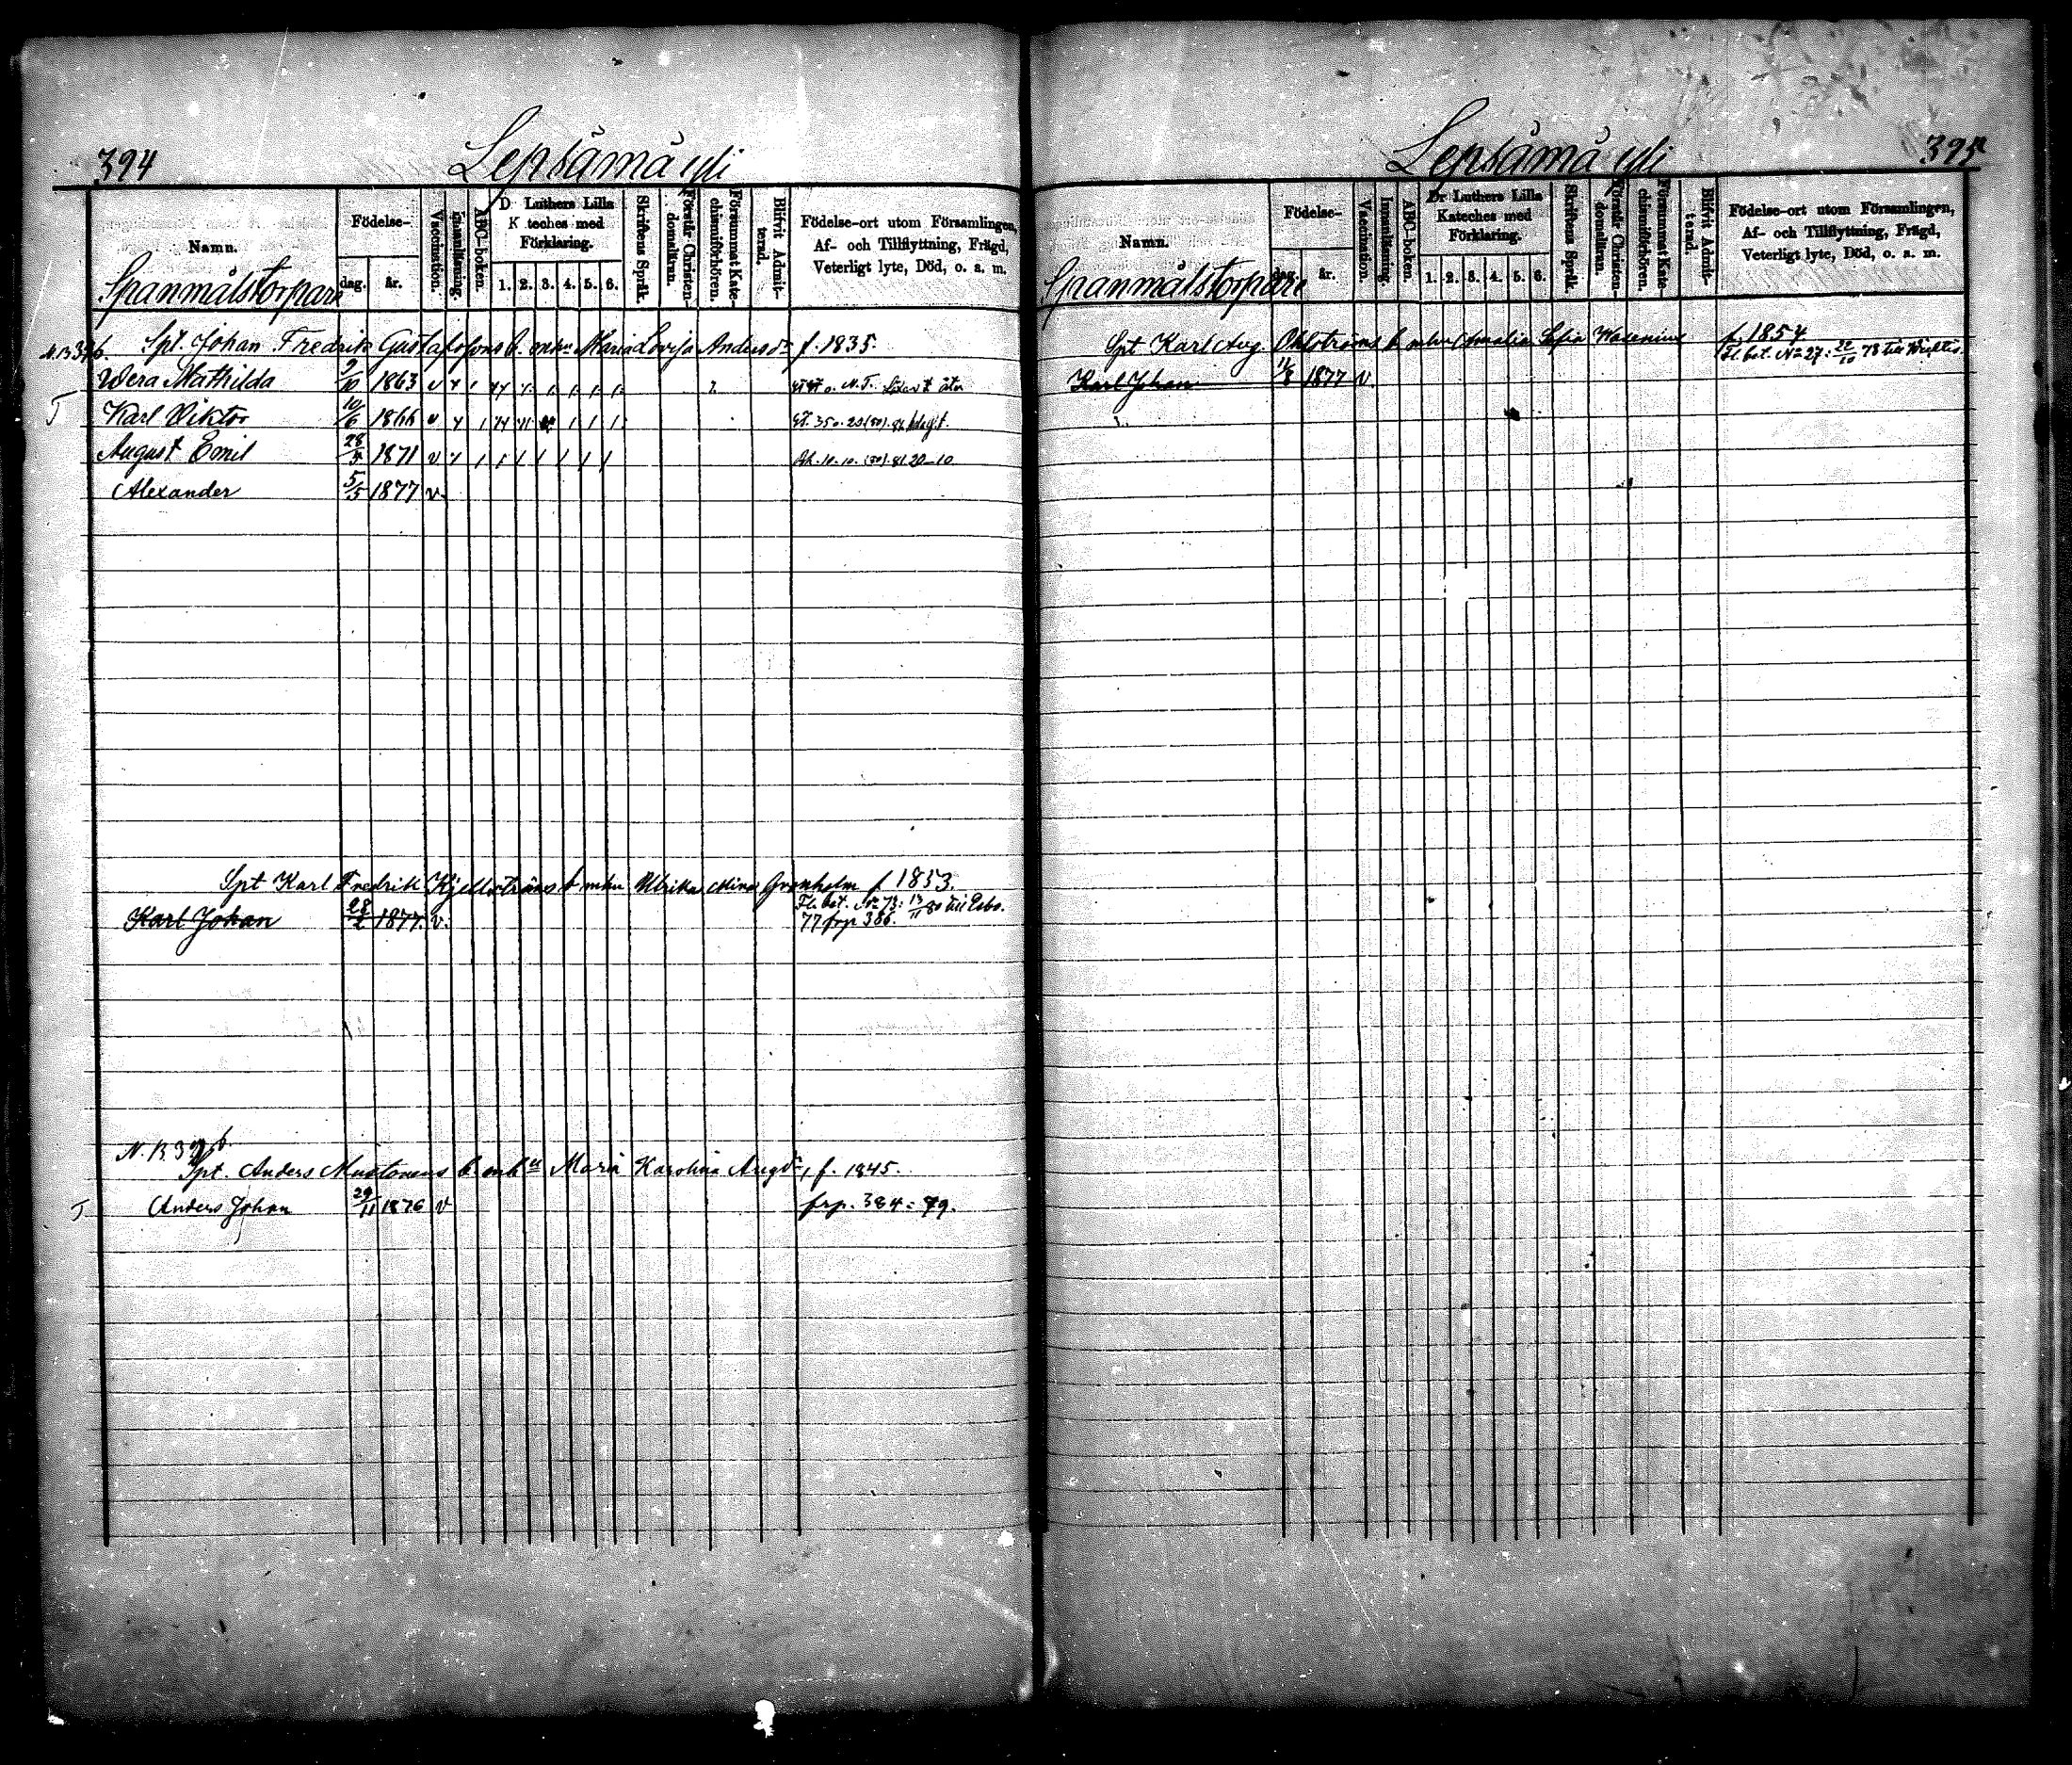 394
Lepsämä yli
Namn.
Födelse-
dag. år.
Vaccination.
Innanläsning.
ABC-boken.
D Luthers Lilla
K teches med
Förklaring.
1. 2. 3. 4. 5. 6.
Skriftens Språk.
Förstår Christen-
domsläran.
Försummat Kate-
chismiförhören.
Blifvit Admit-
terad.
Födelse-ort utom Församlingen,
Af- och Tillflyttning, Frägd,
Veterligt lyte, Död, o. s. m.
Spanmålstorpare
Spt. Johan Fredrik Gustafssons b. m. hu Maria Lovisa Andersdr f. 1835.
Wera Mathilda 9/10 1863 v
Karl Viktor 10/6 1866 v
August Emil 1871 v
Alexander 5/5 1877 v.
Spt Karl Fredrik Kjellströms b mhu Ulrika Mina Grönholm f 1853.
Fl. bet. No 73: 13/11 80 till Esbo.
Karl Johan 28/2 1877. v. 77 frp 386.
Spt. Anders Mustonens b mhu Maria Karolina Augdr, f. 1845.
Anders Johan 29/11 1876 v frp. 384 = 79.
395
Lepsämä yli
Namn.
Födelse-
dag. år.
Vaccination.
Innanläsning.
ABC-boken.
Dr Luthers Lilla
Kateches med
Förklaring.
1. 2. 3. 4. 5. 6.
Skriftens Språk.
Förstår Christen-
domsläran.
Försummat Kate-
chismiförhören.
Blifvit Admit-
terad.
Födelse-ort utom Församlingen,
Af- och Tillflyttning, Frägd,
Veterligt lyte, Död, o. s. m.
Spanmålstorpare
Spt Karl Aug. Ohlströms b mhu Amalia Sofia Wasenius f. 1854
Fl. bet. No 27: 22/10 78 till
Karl Johan 1877 v.